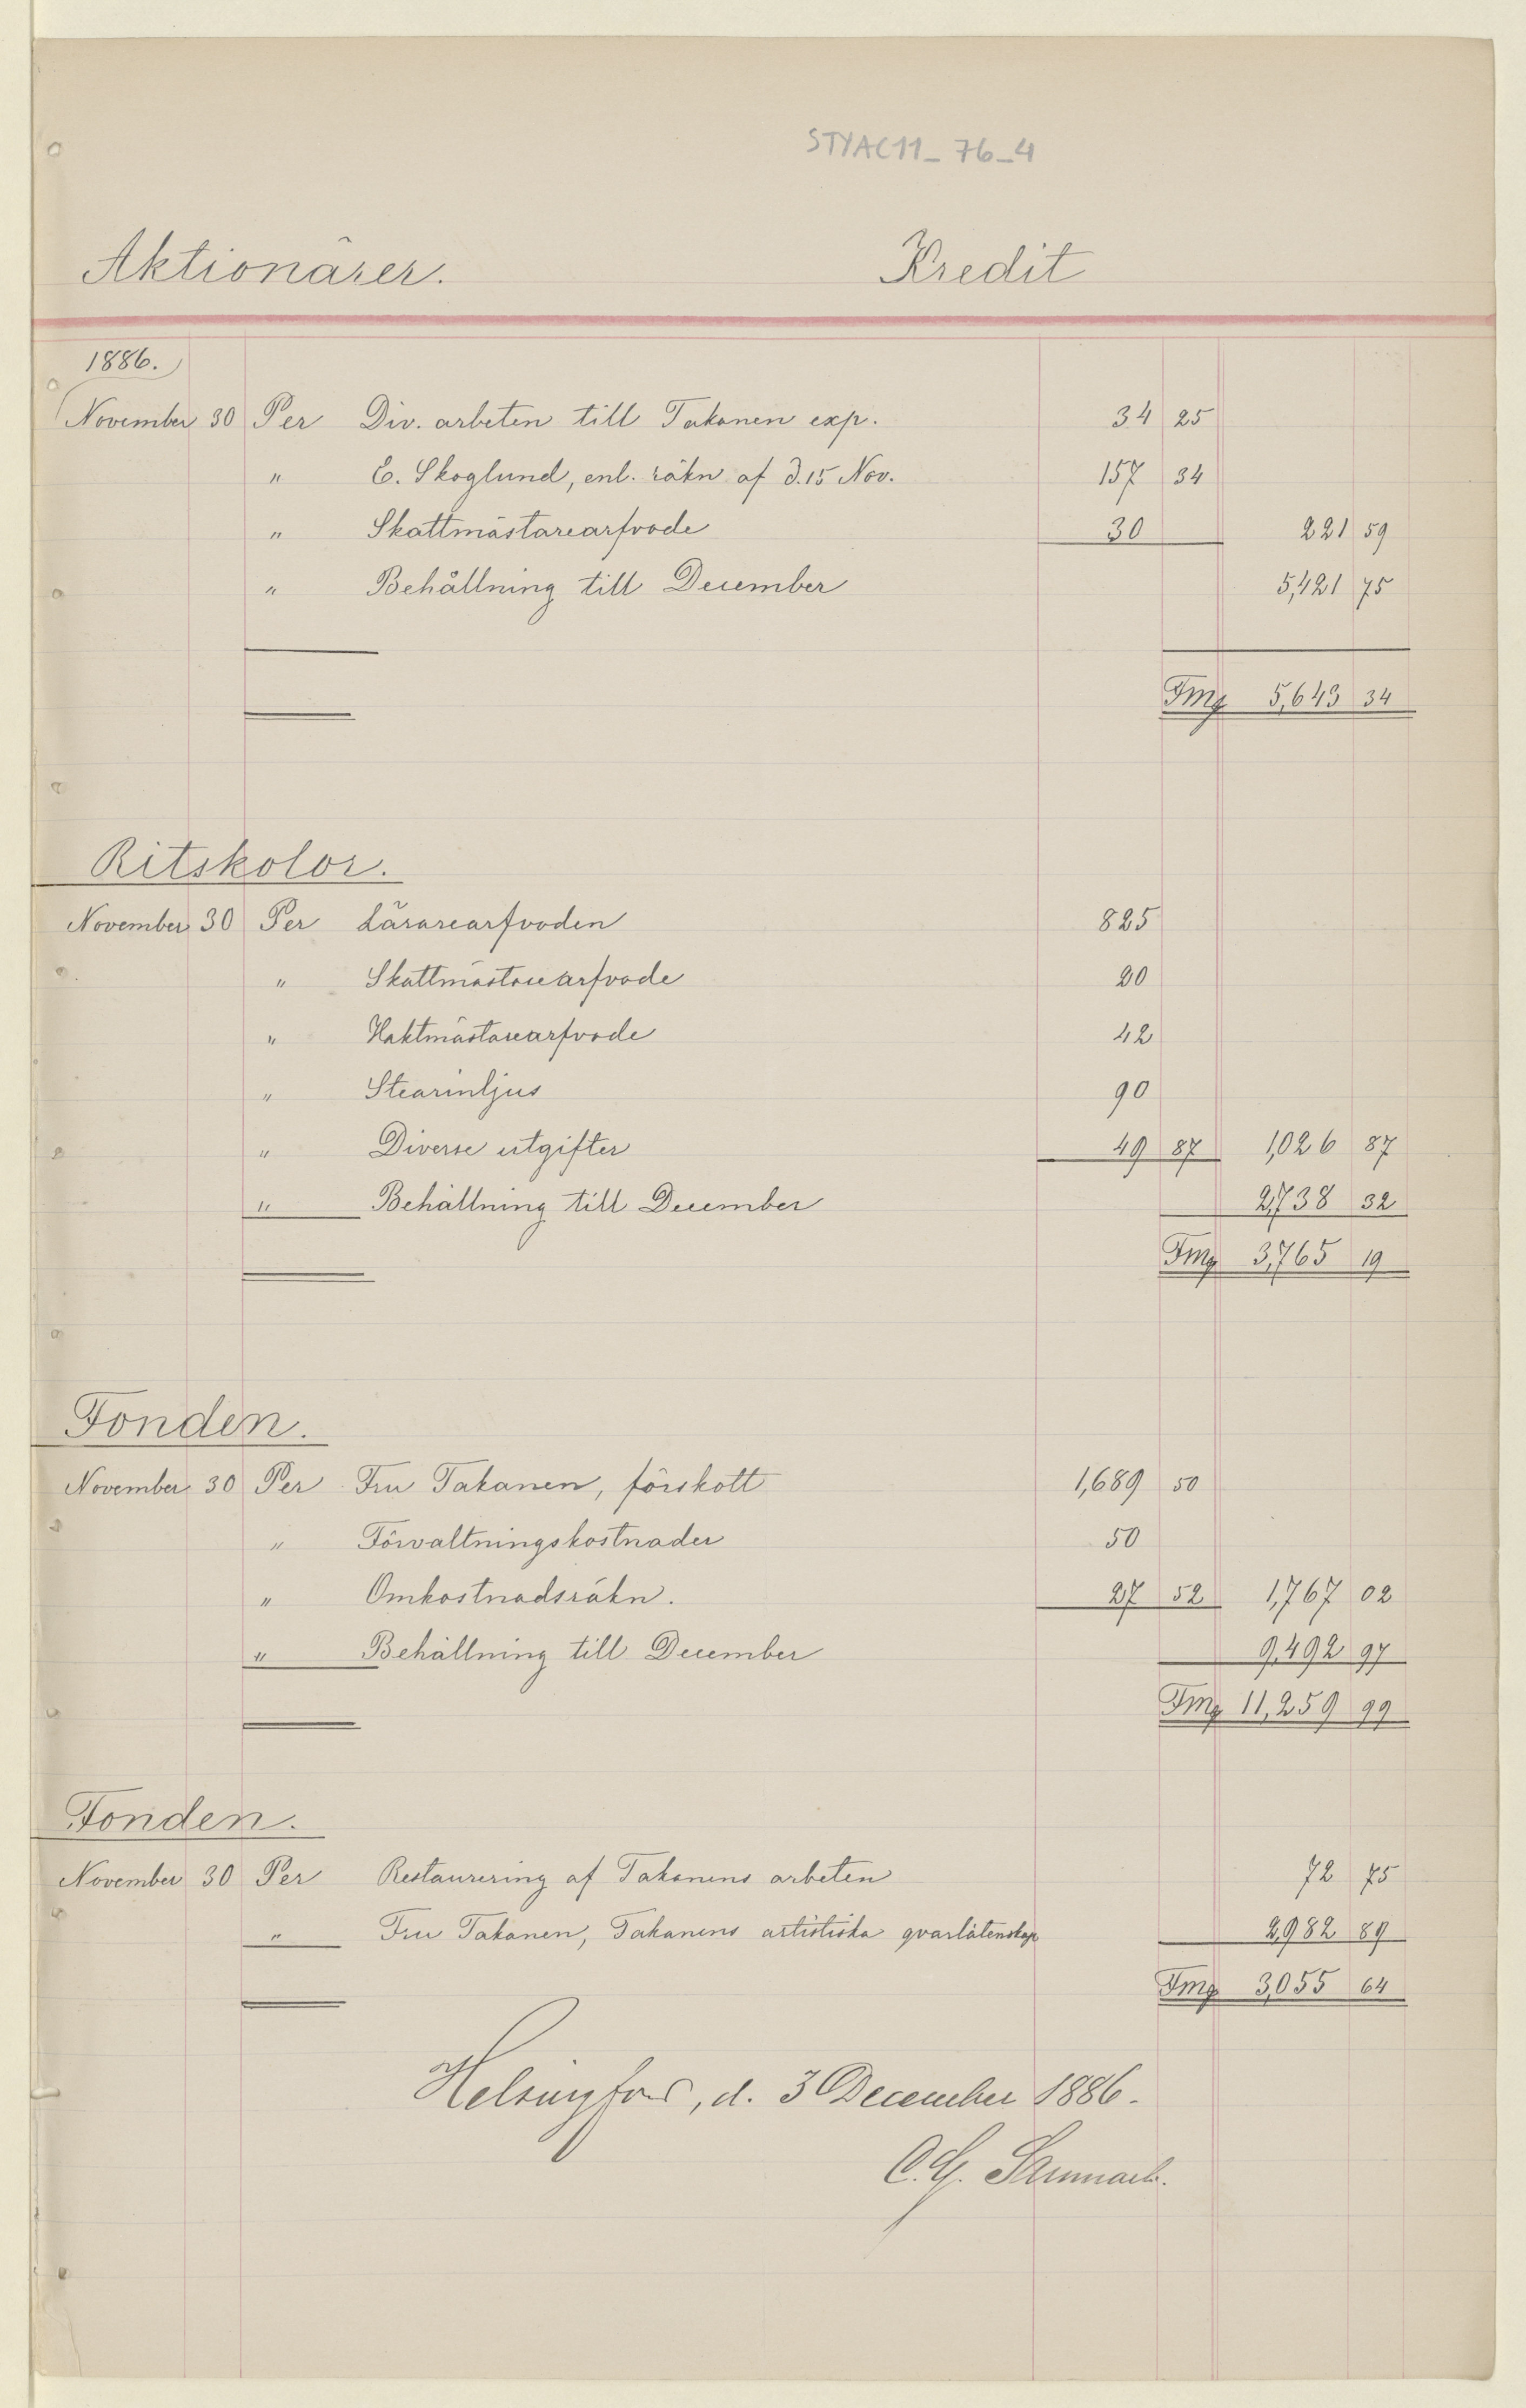 STYAC11_76_4
Aktionärer. Kredit
1886.
November 30 Per Div. arbeten till Takanen exp. 34 25
" E. Skoglund, enl. räkn af d. 15 Nov. 157 34
" Skattmästarearfvode 30 221 59
" Behållning till December 5,421 75
Fmg 5,643 34
Ritskolor.
November 30 Per Lärarearfvoden 825
" Skattmästarearfvode 20
" Vaktmästarearfvode 42
" Stearinljus 90
" Diverse utgifter 49 87 1,026 87
" Behållning till December 2,738 32
Fmg 3,765 19
Fonden.
November 30 Per Fru Takanen, förskott 1,689 50
" Förvaltningskostnader 50
" Omkostnadsräkn. 27 52 1,767 02
" Behållning till December 9,492 97
Fmg 11,259 99
Fonden.
November 30 Per Restaurering af Takanens arbeten 72 75
" Fru Takanen, Takanens artistiska qvarlåtenskap 2,982 89
Fmg 3,055 64
Helsingfors, d. 3 December 1886.
C. G.